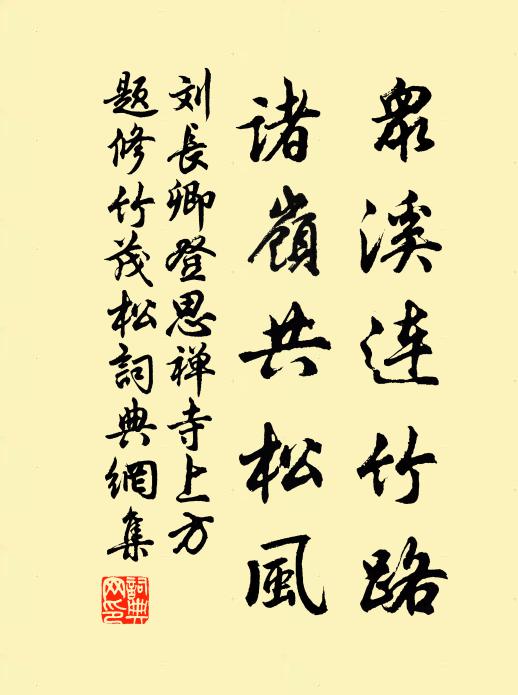 眾溪連竹路
諸嶺共松風
刘長卿登思禅寺上方
題修竹茂松詞典網集
詞典
网印